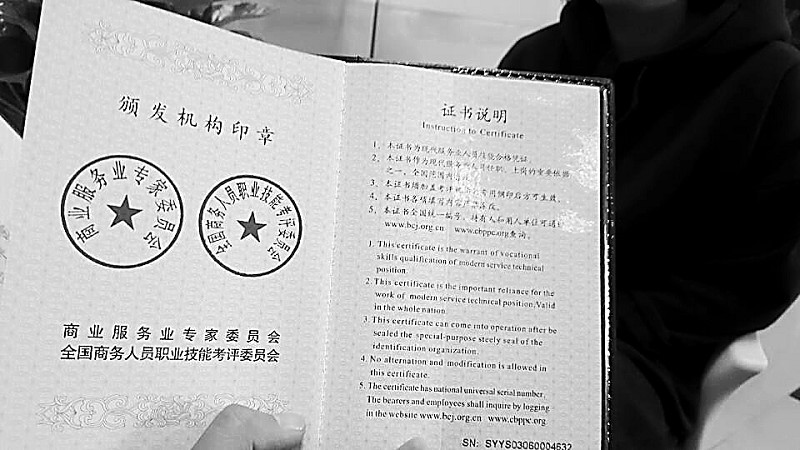 颁发机构印章
商业服务业专家委员会
全国商务人员职业技能考评委员会
商业服务业专家委员会
全国商务人员职业技能考评委员会
证书说明
Instruction to Certificate
1、本证书为现代服务业人员技能合格凭证。
2、本证书作为现代服务业人员任职、上岗的重要依据
之一，全国范围内有效。
3、本证书须加盖考评机构专用钢印后方可生效。
4、本证书各项填写内容严禁涂改。
5、本证书全国统一编号，持有人和用人单位可通过
www.bcj.org.cn www.cbppc.org查询。
1. This certificate is the warrant of vocational
skills qualification of modern service technical
position.
2. This certificate is the important reliance for the
work of modern service technical position,Valid
in the whole nation.
3. This certificate can come into operation after be
sealed the special-purpose steely seal of the
identification organization.
4. No alternation and modification is allowed in
this certificate.
5. The certificate has national universal serial number,
The bearers and employees shall inquire by logging
in the website www.bcj.org.cn www.cbppc.org
SN: SYYS03060004632